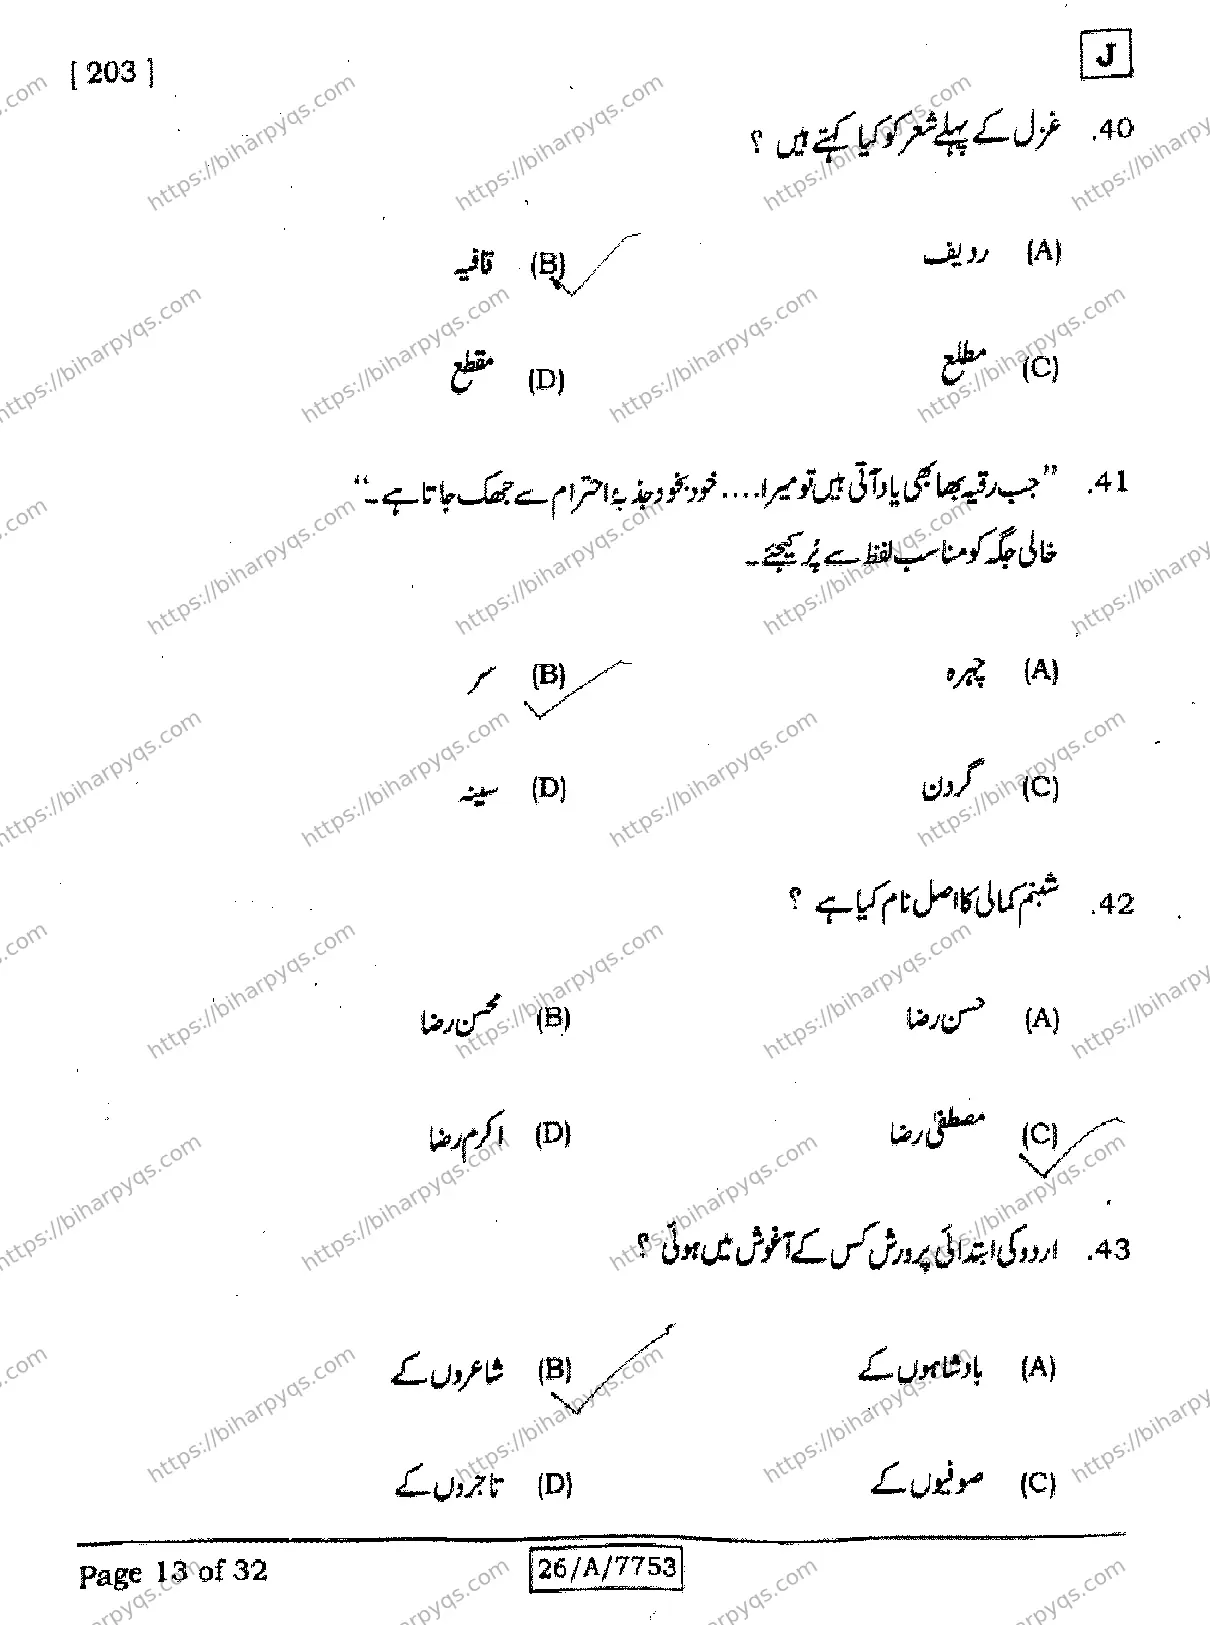 [ 203 ]
J
40. غزل کے پہلے شعر کو کیا کہتے ہیں ؟
(A) ردیف (B) قافیہ
(C) مطلع (D) مقطع
41. ”جب رقیہ بھابھی یاد آتی ہیں تو میرا.... خود بخود جذبۂ احترام سے جھک جاتا ہے۔“
خالی جگہ کو مناسب لفظ سے پُر کیجئے۔
(A) چہرہ (B) سر
(C) گردن (D) سینہ
42. شبنم کمالی کا اصل نام کیا ہے ؟
(A) حسن رضا (B) محسن رضا
(C) مصطفیٰ رضا (D) اکرم رضا
43. اردو کی ابتدائی پرورش کس کے آغوش میں ہوئی ؟
(A) بادشاہوں کے (B) شاعروں کے
(C) صوفیوں کے (D) تاجروں کے
Page 13 of 32
26/A/7753
https://biharpyqs.com